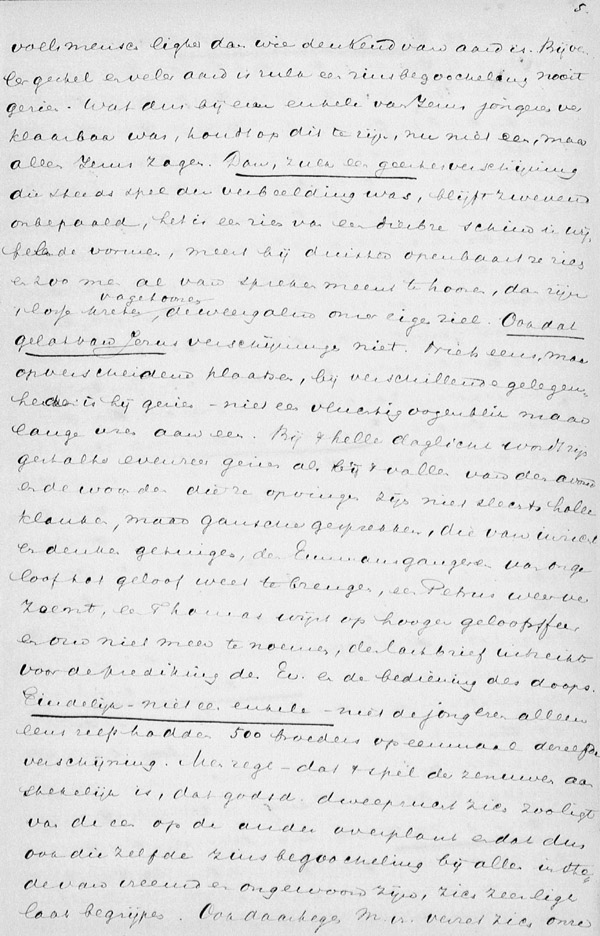 5.
volksmensch ligter dan wie denkend van aard is. Bij ve
ler geheel en veler aard is zulk een zinsbegoocheling nooit
gezien. Wat dus bij een enkele van Jezus jongeren ver
klaarbaar was, houdt op dit te zijn, nu niet een, maar
allen Jezus zagen. Dan, zulk een geestverschijning
die steeds spel der verbeelding was, blijft zwevend
onbepaald, het is een zien van een schim in twij
felende vormen, meest bij duister openbaart ze zich
en zoo men al van spreken meent te hooren, dan zijn
vage hooren
losse kreten, de weergalm onzer eigen ziel. Ook dat
geldt van Jezus verschijningen niet. Niet eens, maar
op verscheidene plaatsen, bij verschillende gelegen-
heden is hij gezien - niet een vluchtig oogenblik maar
lange uren aan een. Bij 't helle daglicht wordt zijn
gestalte evenzeer gezien als bij 't vallen van den avond
en de woorden die ze opvingen zijn niet slechts holle
klanken, maar gansche gesprekken, die van inzicht
en denken getuigen, de Emmausgangeren van onge
loof tot geloof weet te brengen, een Petrus weer ver
zoent, een Thomas wijst op hooger geloofssfeer
en om niet meer te noemen, den lastbrief uitreikt
voor de prediking des Ev. en de bediening des doops.
Eindelijk - niet een enkele - niet de jongeren alleen
eens zelfs hadden 500 broeders op eenmaal dezelfde
verschijning. Men zegge - dat 't spel der zenuwen aan
stekelijk is, dat godsd. dweepzucht zich zoo ligt
van de een op de ander overplant en dat dus
ook die zelfde zinsbegoocheling bij allen
hoe vreemd en ongewoon zijn, zich zeer lig
laat begrijpen. Ook daartegen M. V. verzet zich onze